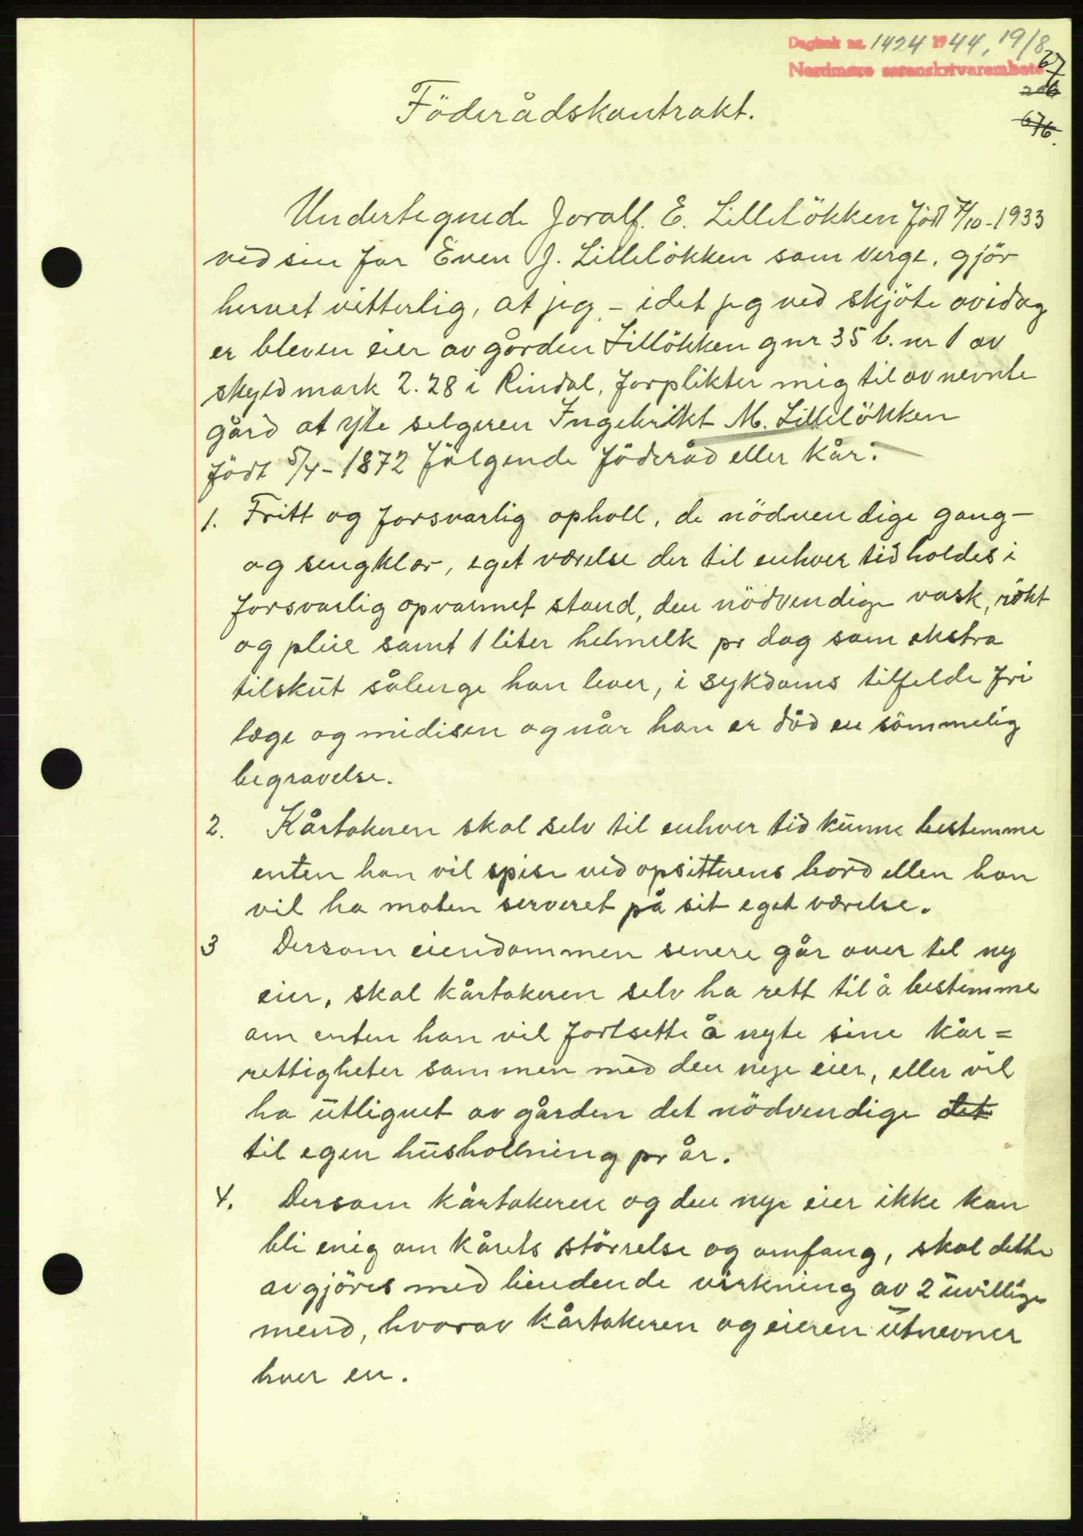 Dagbok nr. 1424 1944, 19/8
Nordmøre sorenskrivarembete
676.
Föderådskontrakt.
Undertegnede Joralf. E. Lillelökken födt 7/10-1933
ved sin far Even J. Lillelökken som verge, gjör
hervet vitterlig, at jeg - idet jeg ved skjöte avidag
er bleven eier av gården Lillökken gnr 35 b. nr 1 av
skyld mark 2.28 i Rindal, forplikter mig til av nevnte
gård at yte selgeren Ingebrikt M. Lillelökken
födt 5/4-1872 fölgende föderåd eller kår:
1. Fritt og forsvarlig opholl, de nödvendige gang-
og sengklær, eget værelse der til enhver tid holdes i
forsvarlig opvarmet stand, den nödvendige vask, rökt
og pleie samt 1 liter helmelk pr dag som ekstra
tilskut sålenge han lever, i sykdoms tilfelde fri
læge og midisin og når han er död en sömmelig
begravelse.
2. Kårtakeren skal selv til enhver tid kunne bestemme
enten han vil spise ved opsitterens bord ellen han
vil ha maten serveret på sit eget værelse.
3 Dersom eiendommen senere går over til ny
eier, skal kårtakeren selv ha rett til å bestemme
om enten han vil fortsette å nyte sine kår=
rettigheter sammen med den nye eier, eller vil
ha utlignet av gården det nödvendige det
til egen husholling pr år.
4. Dersom kårtakeren og den nye eier ikke kan
bli enig om kårets störrelse og omfang, skal dette
avgjöres med bindende virkning av 2 uvillige
mend, hvorav kårtakeren og eieren utnevner
hver en.